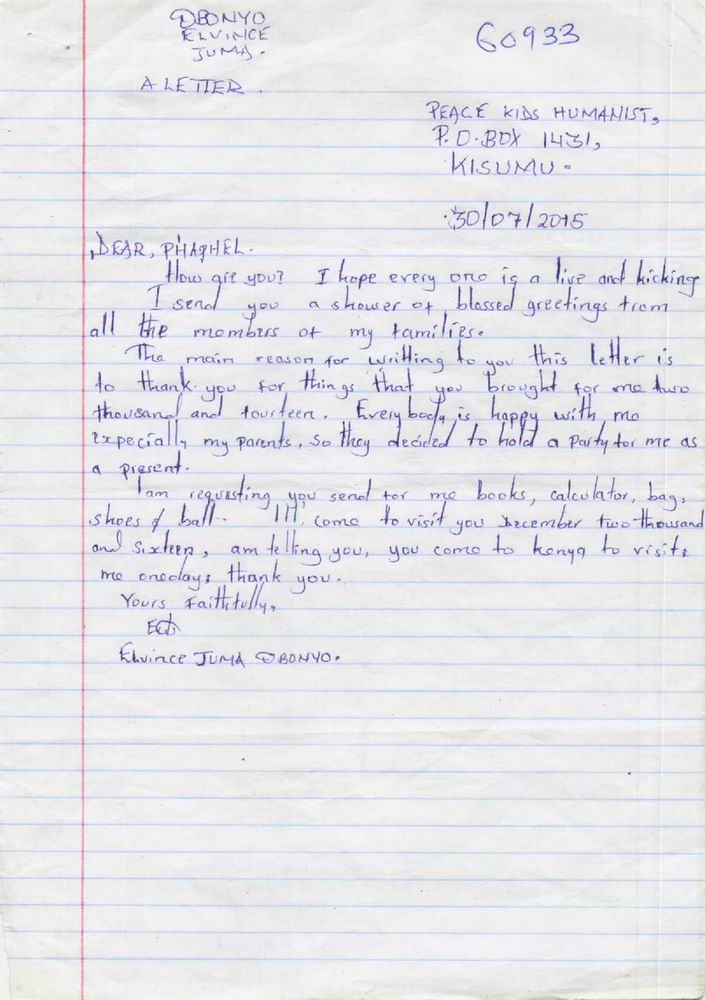 OBONYO
ELVINCE
JUMA.
60933
A LETTER.
PEACE KIDS HUMANIST,
P.O.BOX 1431,
KISUMU.
30/07/2015
DEAR, PHAPHEL.
How are you? I hope every one is a live and kicking
I send you a shower of blessed greetings from
all the members of my families.
The main reason for writting to you this letter is
to thank you for things that you brought for me two
thousand and fourteen. Everybody is happy with me
expecially my parents, so they decided to hold a party for me as
a present.
I am requesting you send for me books, calculator, bag,
shoes & ball. I'll, come to visit you December two thousand
and sixteen, am telling you, you come to kenya to visit
me oneday, thank you.
Yours Faithfully,
Elvince JUMA OBONYO.